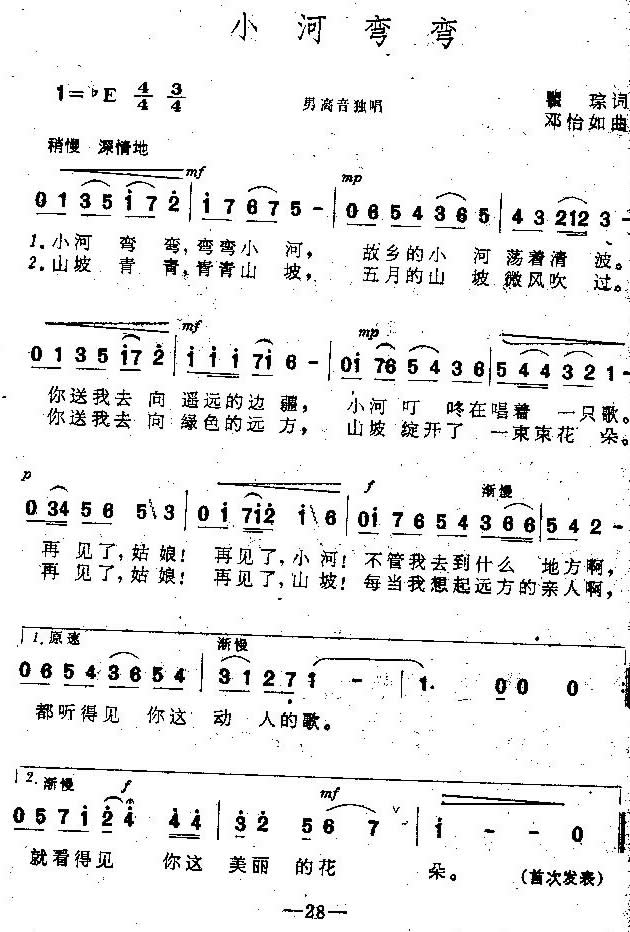 小河弯弯
1=♭E 4/4 3/4
男高音独唱
瞿琮词
邓怡如曲
稍慢 深情地
mf mp
0 1 3 5 1 7 2 | 1 7 6 7 5 - | 0 6 5 4 3 6 5 | 4 3 2 1 2 3 -
1.小河 弯 弯,弯弯小 河, 故乡的小 河荡着清 波。
2.山坡 青 青,青青山 坡, 五月的山 坡微风吹 过。
mf mp
0 1 3 5 i 7 2 | i i i 7 i 6 - | 0 i 7 6 5 4 3 6 | 5 4 4 3 2 1 -
你送我去 向 遥远的边 疆, 小河 叮 咚在唱着 一只歌。
你送我去 向 绿色的远 方, 山坡 绽开了 一束束花 朵。
p f 渐慢
0 3 4 5 6 5 3 | 0 i 7 i 2 i 6 | 0 i 7 6 5 4 3 6 6 | 5 4 2 -
再 见了,姑 娘! 再见了,小 河! 不管我去到什么 地方啊,
再 见了,姑 娘! 再见了,山 坡! 每当我想起远方的亲人啊,
1.原速 渐慢
0 6 5 4 3 6 5 4 | 3 1 2 7 1 - | 1. 0 0 0
都听得见 你这 动 人的歌。
2.渐慢 f mf
0 5 7 i 2 4 4 4 | 3 2 5 6 7 | i - - 0
就看得见 你这 美丽 的花 朵。 (首次发表)
—28—